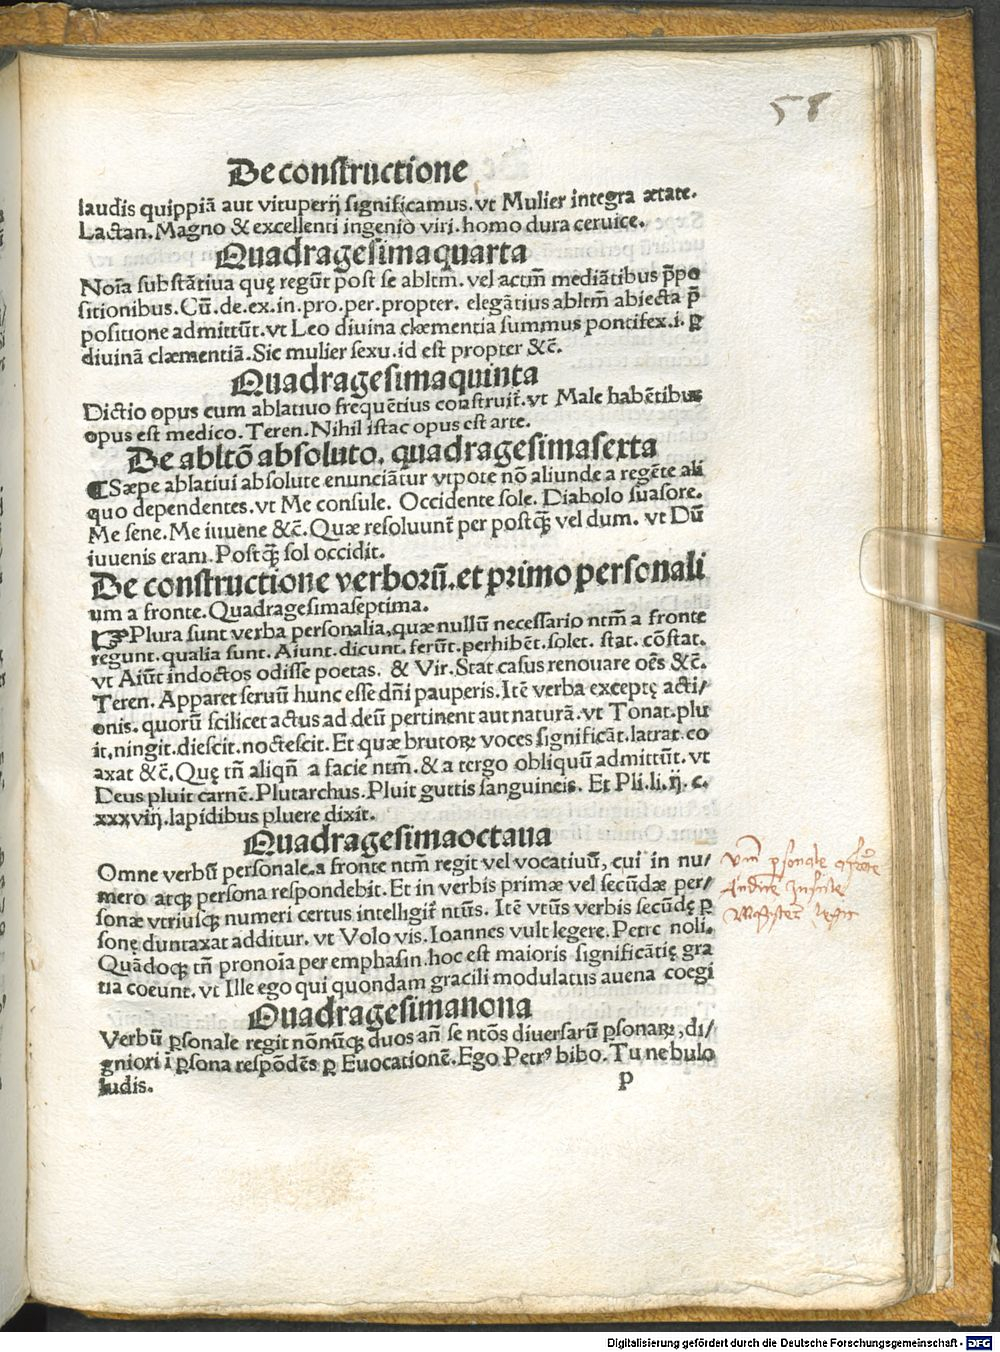 58
De constructione
laudis quippiã aut vituperij significamus. vt Mulier integra ætate.
Lactan. Magno & excellenti ingenio viri. homo dura ceruice.
Quadragesimaquarta
Noĩa substãtiua quę regũt post se abltm̃. vel actm̃ mediãtibus p̃po
sitionibus. Cũ. de. ex. in. pro. per. propter. elegãtius abltm̃ abiecta p̃
positione admittũt. vt Leo diuina clæmentia summus pontifex. i. ꝑ
diuinã clæmentiã. Sic mulier sexu. id est propter &c̃.
Quadragesimaquinta
Dictio opus cum ablatiuo frequẽtius construit̃. vt Male habẽtibus
opus est medico. Teren. Nihil istac opus est arte.
De abltõ absoluto. quadragesimasexta
¶ Sæpe ablatiui absolute enunciãtur vtpote nõ aliunde a regẽte ali
quo dependentes. vt Me consule. Occidente sole. Diabolo suasore.
Me sene. Me iuuene &c̃. Quæ resoluunt̃ per postꝗ̃ vel dum. vt Dũ
iuuenis eram. Postꝗ̃ sol occidit.
De constructione verborũ. et primo personali
um a fronte. Quadragesimaseptima.
Plura sunt verba personalia, quæ nullũ necessario ntm̃ a fronte
regunt. qualia sunt. Aiunt. dicunt. ferũt. perhibẽt. solet. stat. cõstat.
vt Aiũt indoctos odisse poetas. & Vir. Stat casus renouare oẽs &c̃.
Teren. Apparet seruũ hunc esse dñi pauperis. Itẽ verba exceptę acti/
onis. quorũ scilicet actus ad deũ pertinent aut naturã. vt Tonat. plu
it. ningit. diescit. noctescit. Et quæ brutoꝝ voces significãt. latrat. co
axat &c̃. Quę tñ aliqñ a facie ntm̃. & a tergo obliquũ admittũt. vt
Deus pluit carnẽ. Plutarchus. Pluit guttis sanguineis. Et Pli. li. ij. c.
xxxviij. lapidibus pluere dixit.
Quadragesimaoctaua
Omne verbũ personale. a fronte ntm̃ regit vel vocatiuũ, cui in nu/
mero atqꝫ persona respondebit. Et in verbis primæ vel secũdæ per/
sonæ vtriusqꝫ numeri certus intelligit̃ ntũs. Itẽ vtũs verbis secũdę ꝑ
sonę duntaxat additur. vt Volo vis. Ioannes vult legere. Petre noli.
Quãdoqꝫ tñ pronoĩa per emphasin. hoc est maioris significãtię gra
tia coeunt. vt Ille ego qui quondam gracili modulatus auena coegi
Quadragesimanona
Verbũ ꝑsonale regit nõnũqꝫ duos añ se ntõs diuersarũ ꝑsonaꝝ, di/
gniori ĩ ꝑsona respõdẽs ꝑ Euocationẽ. Ego Petrꝰ bibo. Tu nebulo
ludis.
p
Digitalisierung gefördert durch die Deutsche Forschungsgemeinschaft - DFG